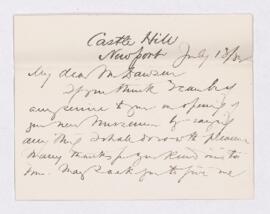 Castle Hill
Newport July 13/82
My dear Mr Dawson
If you think I can be of
any service to you in opening of
your new Museum by saying
any thing I shall do so with pleasure
Many thanks for your kind invita
tion. May I ask you to give me